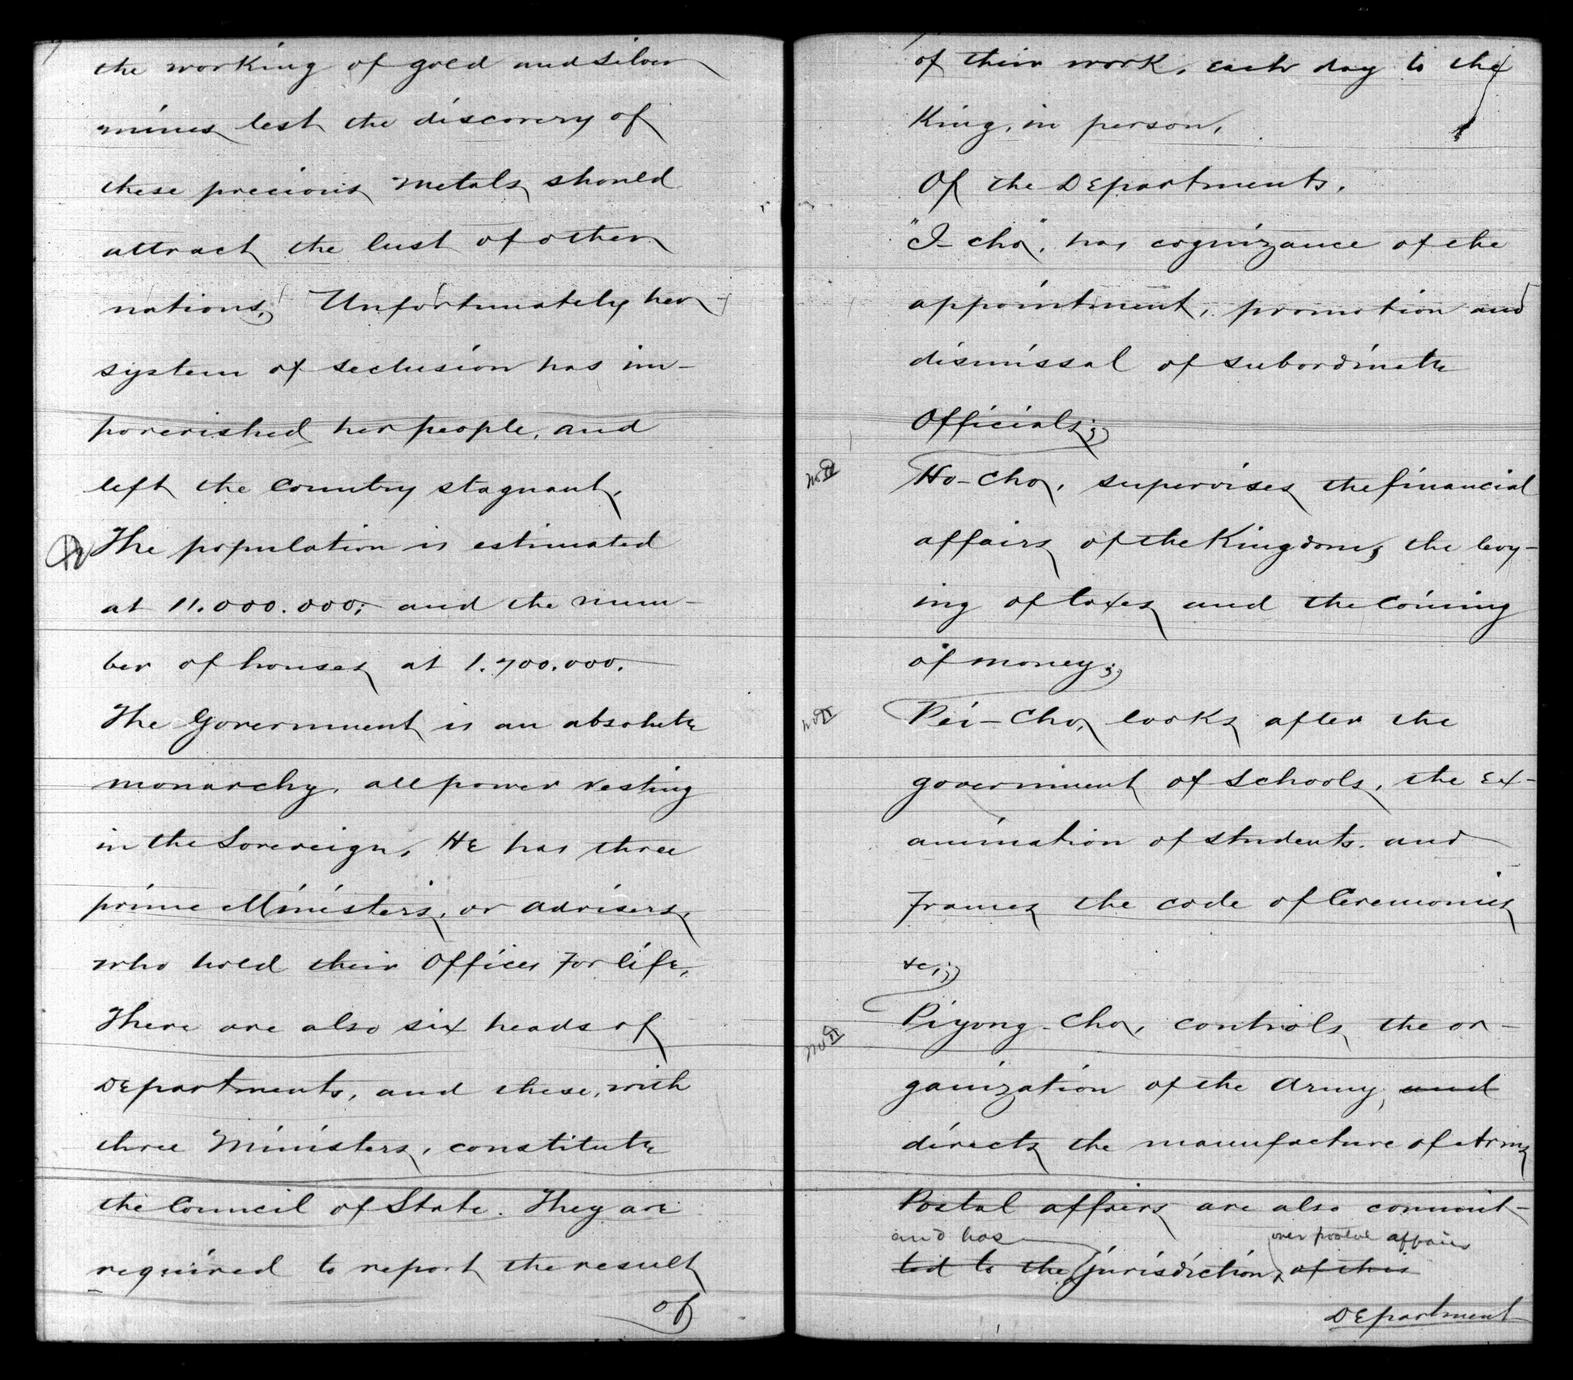 the working of gold and silver
mines lest the discovery of
these precious metals should
attract the lust of other
nations. Unfortunately her
system of seclusion has im-
poverished her people, and
left the Country stagnant.
The population is estimated
at 11.000.000; and the num-
ber of houses at 1.700.000.
The Government is an absolute
monarchy, all power resting
in the Sovereign. He has three
prime Ministers, or advisers,
who hold their Offices For life.
There are also six heads of
Departments, and these, with
three Ministers, constitute
the Council of State. They are
required to report the result
of
of their work, each day to the
King, in person.
Of the Departments.
"I-cho", has cognizance of the
appointment, promotion and
dismissal of subordinate
Officials;
Ho-Cho, supervises the financial
affairs of the Kingdom, the levy-
ing of taxes and the Coining
of money;
Pei-Cho, looks after the
government of Schools, the Ex-
amination of students. and
Frames the code of Ceremonies
&c;
Piyong-Cho, controls the or-
ganization of the Army, and
directs the manufacture of Arms
Postal affairs are also commit-
and has over postal affairs
ted to the jurisdiction, of this
Department